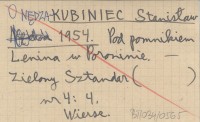 NĘDZA KUBINIEC Stanisław
1954. Pod pomnikiem
Lenina w Poroninie. –
Zielony Sztandar (
nr 4: 4.
Wiersz.